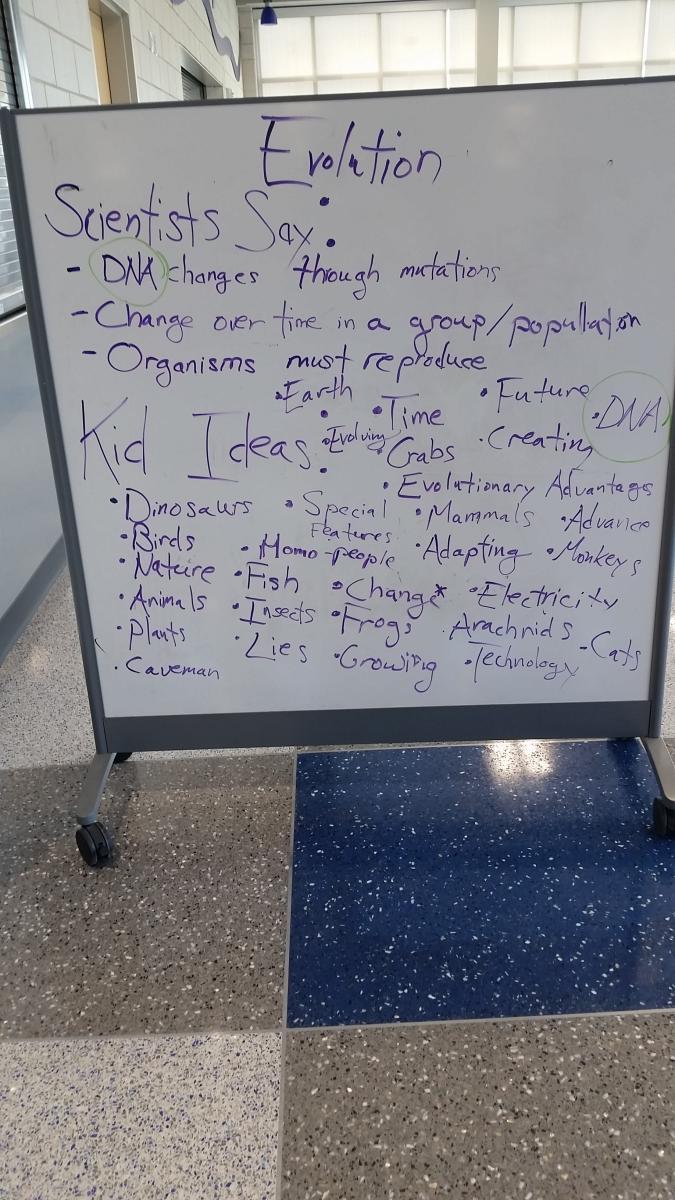 Evolution
Scientists Say:
- DNA changes through mutations
- Change over time in a group/popullation
- Organisms must reproduce
Kid Ideas:
•Earth •Time •Future •DNA
•Evolving •Crabs •Creating
•Evolutionary Advantages
•Dinosaurs •Special Features •Mammals •Advance
•Birds •Homo-people •Adapting •Monkeys
•Nature •Fish •Change* •Electricity
•Animals •Insects •Frogs •Arachnids -Cats
•Plants •Lies •Growing •Technology
•Caveman